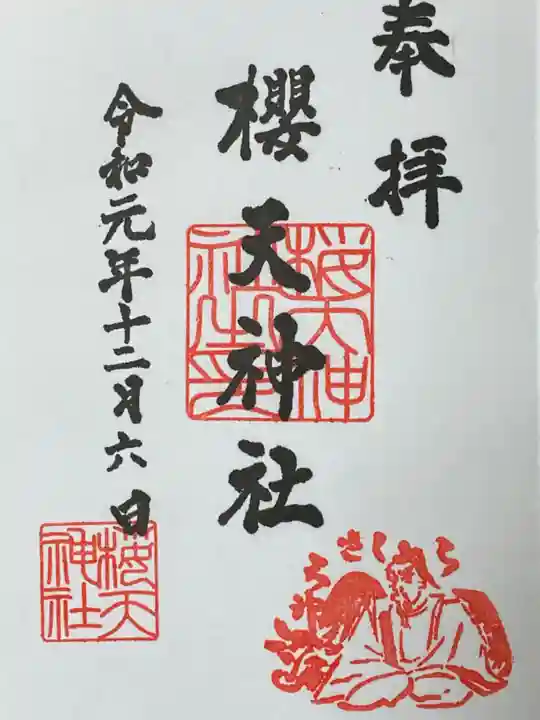 奉拝
櫻天神社
令和元年十二月六日
桜天神
社之印
桜天
神社
さくら